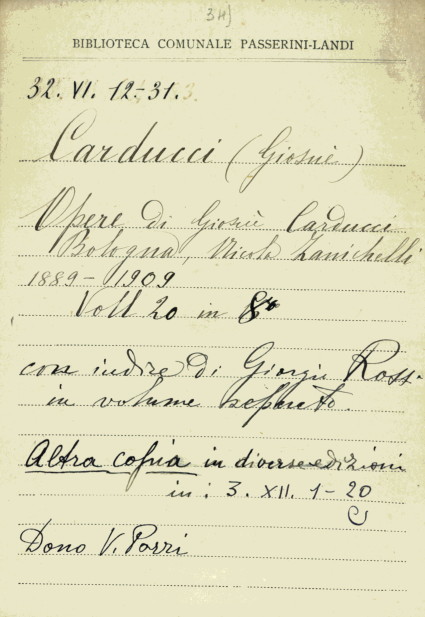 34)
BIBLIOTECA COMUNALE PASSERINI-LANDI
32. VI. 12-31.
Carducci (Giosuè)
Opere di Giosuè Carducci
Bologna, Nicola Zanichelli
1889-1909
Voll 20 in 8°
con indice di Giorgio Rossi
in volume separato.
Altra copia in diverse edizioni
in: 3. XII. 1-20
Dono V. Porri